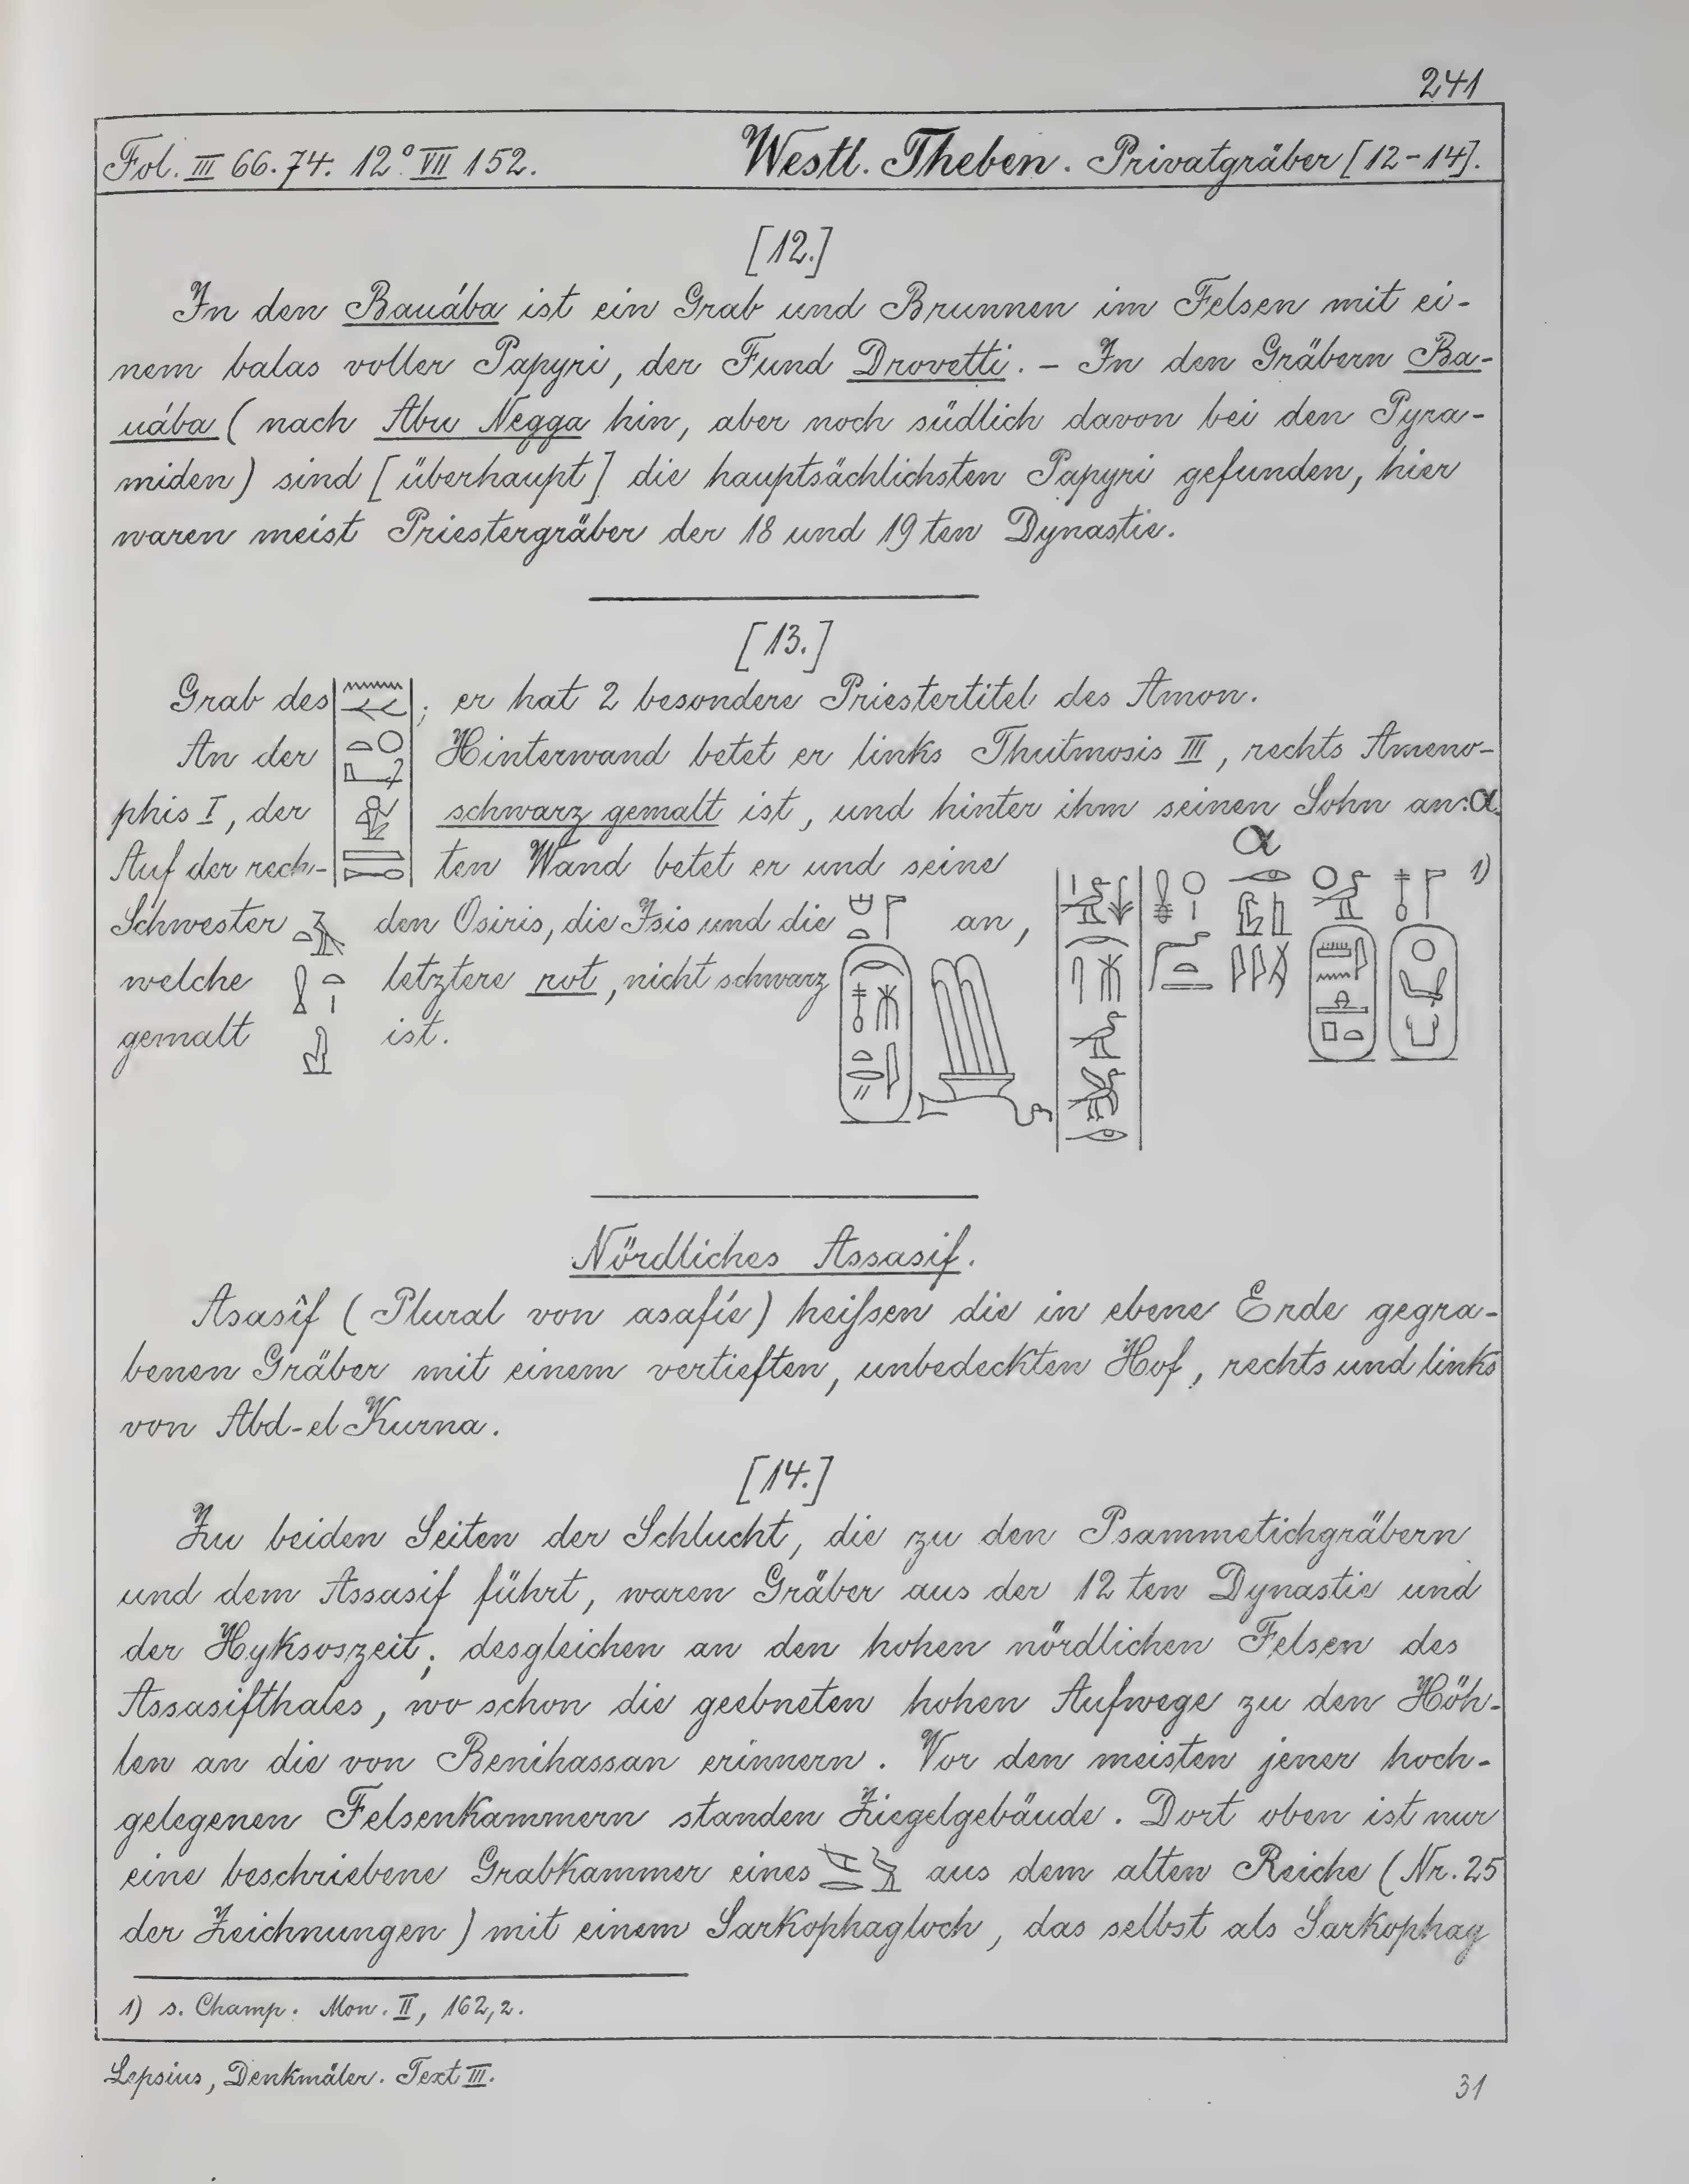 241
Fol. III 66.74. 12° VII 152. Westl. Theben. Privatgräber [12-14].
[12.]
In den Bauába ist ein Grab und Brunnen im Felsen mit ei-
nem balas voller Papyri, der Fund Drovetti. - In den Gräbern Ba-
uába (nach Abu Negga hin, aber noch südlich davon bei den Pyra-
miden) sind [überhaupt] die hauptsächlichsten Papyri gefunden, hier
waren meist Priestergräber der 18 und 19ten Dynastie.
[13.]
Grab des ; er hat 2 besondere Priestertitel des Amon.
An der Hinterwand betet er links Thutmosis III, rechts Ameno-
phis I, der schwarz gemalt ist, und hinter ihm seinen Sohn an: α.
Auf der rech- ten Wand betet er und seine
Schwester den Osiris, die Isis und die an,
welche letztere rot, nicht schwarz
gemalt ist.
α
1)
Nördliches Assasif.
Asasîf (Plural von asafíe) heifsen die in ebene Erde gegra-
benen Gräber mit einem vertieften, unbedeckten Hof, rechts und links
von Abd-el Kurna.
[14.]
Zu beiden Seiten der Schlucht, die zu den Psammetichgräbern
und dem Assasif führt, waren Gräber aus der 12ten Dynastie und
der Hyksoszeit; desgleichen an den hohen nördlichen Felsen des
Assasifthales, wo schon die geebneten hohen Aufwege zu den Höh-
len an die von Benihassan erinnern. Vor den meisten jener hoch-
gelegenen Felsenkammern standen Ziegelgebäude. Dort oben ist nur
eine beschriebene Grabkammer eines aus dem alten Reiche (Nr. 25
der Zeichnungen) mit einem Sarkophagloch, das selbst als Sarkophag
1) s. Champ. Mon. II, 162,2.
Lepsius, Denkmäler. Text III.
31